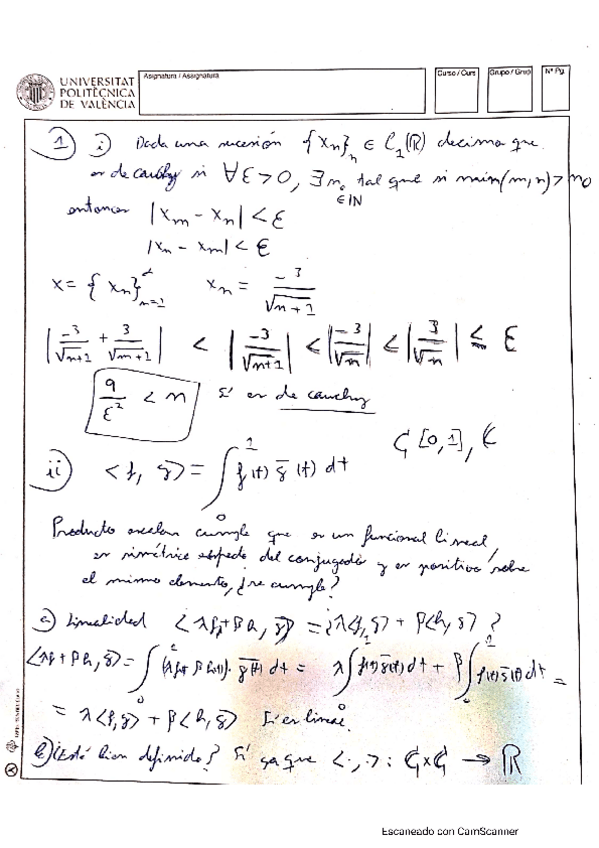 UNIVERSITAT
POLITÈCNICA
DE VALÈNCIA
Asignatura / Assignatura
Curso / Curs
Grupo / Grup
Nº Pg.
1) i) Dada una sucesión {x_n}_n ∈ l_1(ℝ) decimos que
es de cauchy si ∀ε>0, ∃ n_0 ∈ℕ tal que si min(m,n) > n_0
entonces |x_m - x_n| < ε
|x_n - x_m| < ε
x = { x_n }_{n=1} x_n = -3/√(n+1)
|-3/√(n+1) + 3/√(m+1)| < |-3/√(n+1)| < |-3/√n| < |3/√n| ≤ ε
9/ε² < n Sí es de cauchy
C [0,1], ℂ
ii) <f, g> = ∫_0^1 f(t) g̅(t) dt
Producto escalar cumple que es un funcional lineal,
es simétrico respecto del conjugado y es positivo sobre
el mismo elemento, ¿se cumple?
a) Linealidad <λf+βh, g> = ¿λ<f,g> + β<h,g> ?
<λf+βh, g> = ∫_0^1 (λf+βh(t))· g̅(t) dt = λ∫_0^1 f(t)g̅(t)dt + β∫_0^1 f(t)g̅(t)dt =
= λ<f,g> + β<h,g> Sí es lineal.
b) ¿Está bien definido? Sí ya que <·,·>: C×C → ℝ
Escaneado con CamScanner